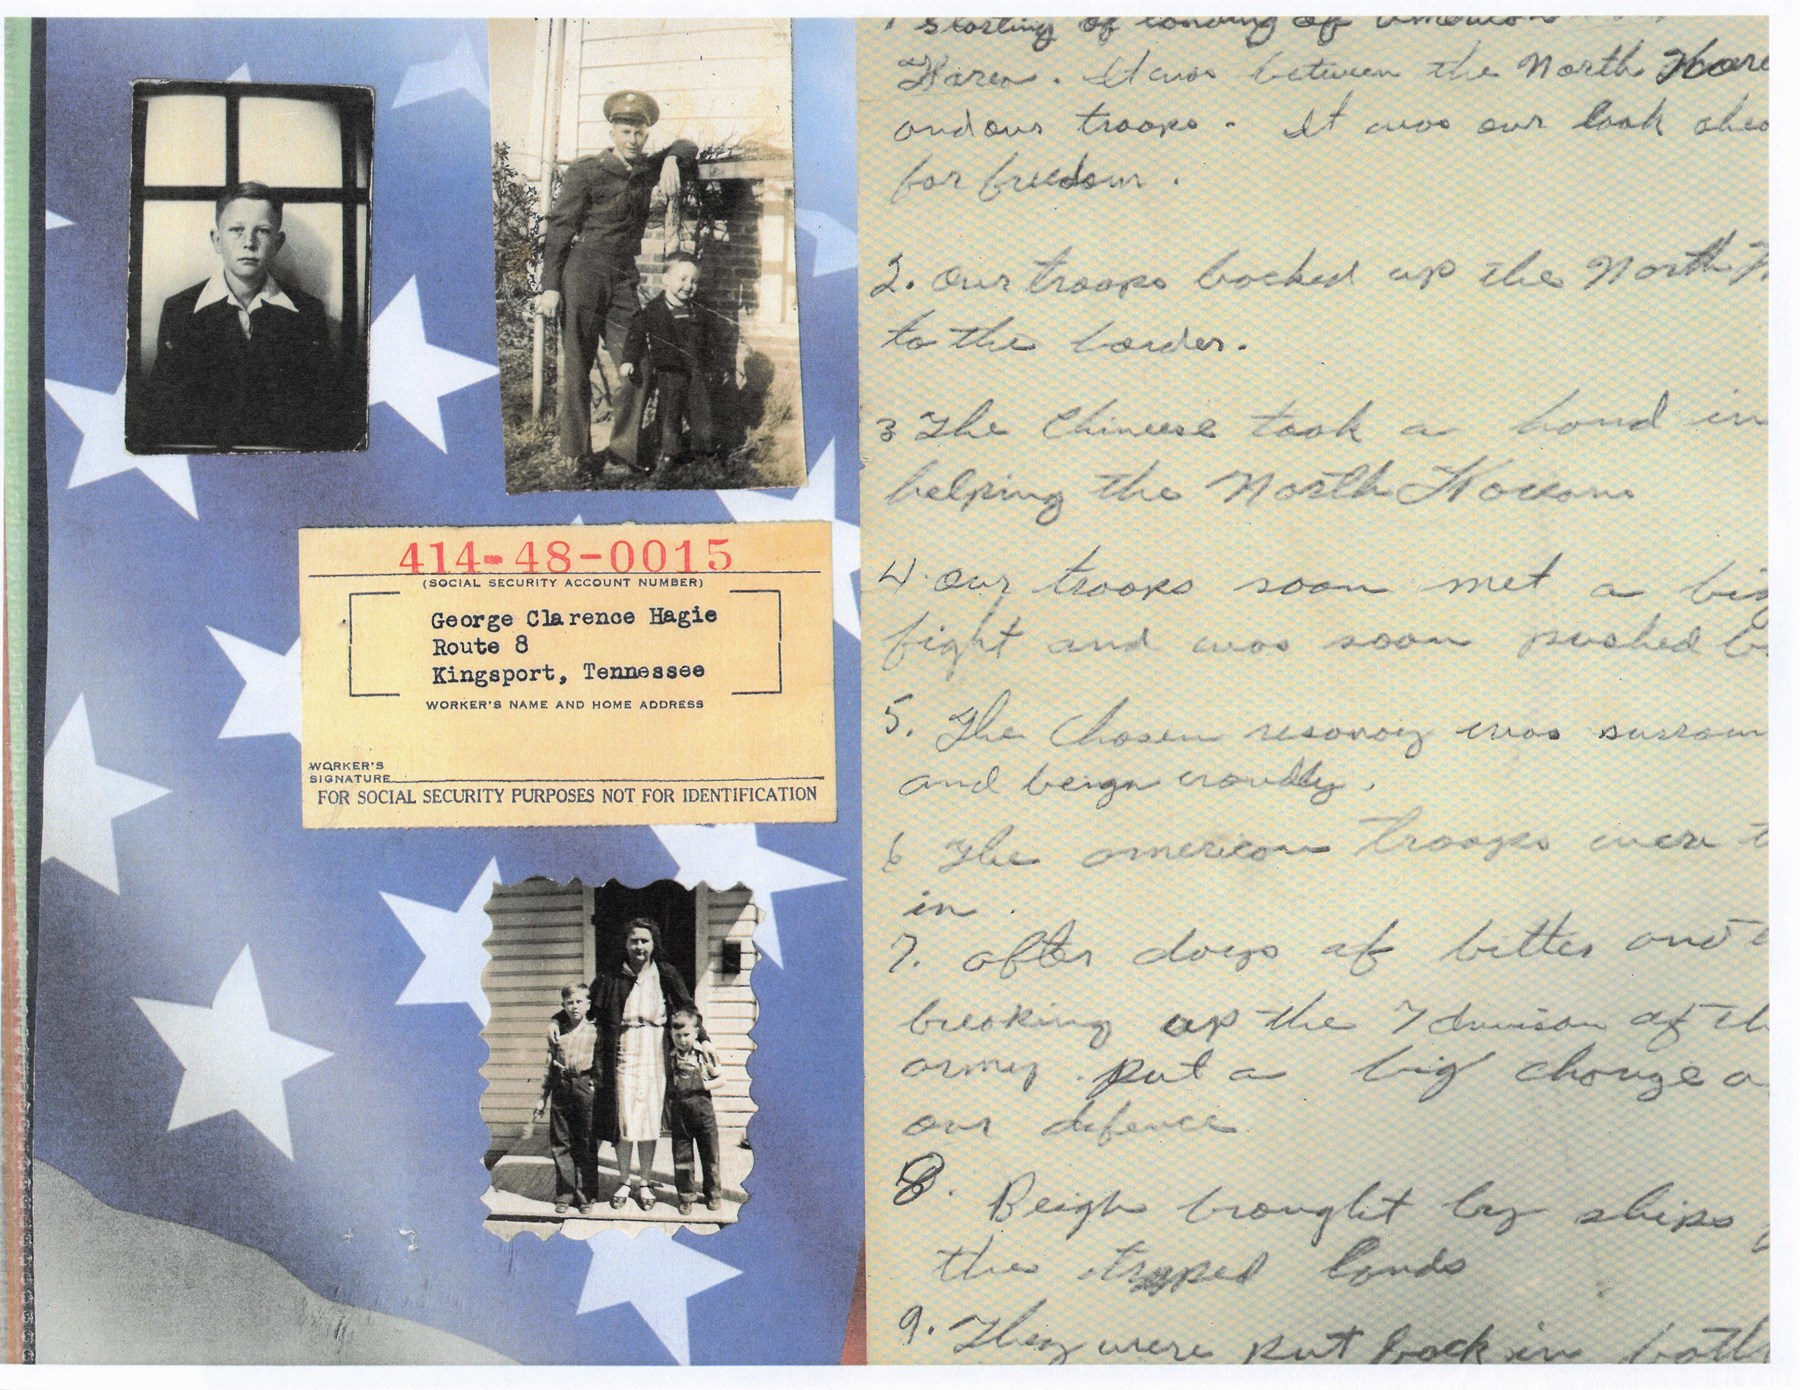 414-48-0015
(SOCIAL SECURITY ACCOUNT NUMBER)
George Clarence Hagie
Route 8
Kingsport, Tennessee
WORKER'S NAME AND HOME ADDRESS
WORKER'S
SIGNATURE
FOR SOCIAL SECURITY PURPOSES NOT FOR IDENTIFICATION
1 Starting of landing of American
Korea. It was between the North Kore
and our troops. It was our look ahea
for freedom.
2. Our troops backed up the North K
to the border.
3 The Chineese took a hand in
helping the North Koreans
4. Our troops soon met a big
fight and was soon pushed b
5. The Chosen resovoy was surroun
and beign
6 The American troops were t
in.
7. After days of bitter and
breaking up the 7 division of th
army. put a big change o
our defence
8. Beigh brought by ships
the traped lands
9. They were put back in batt